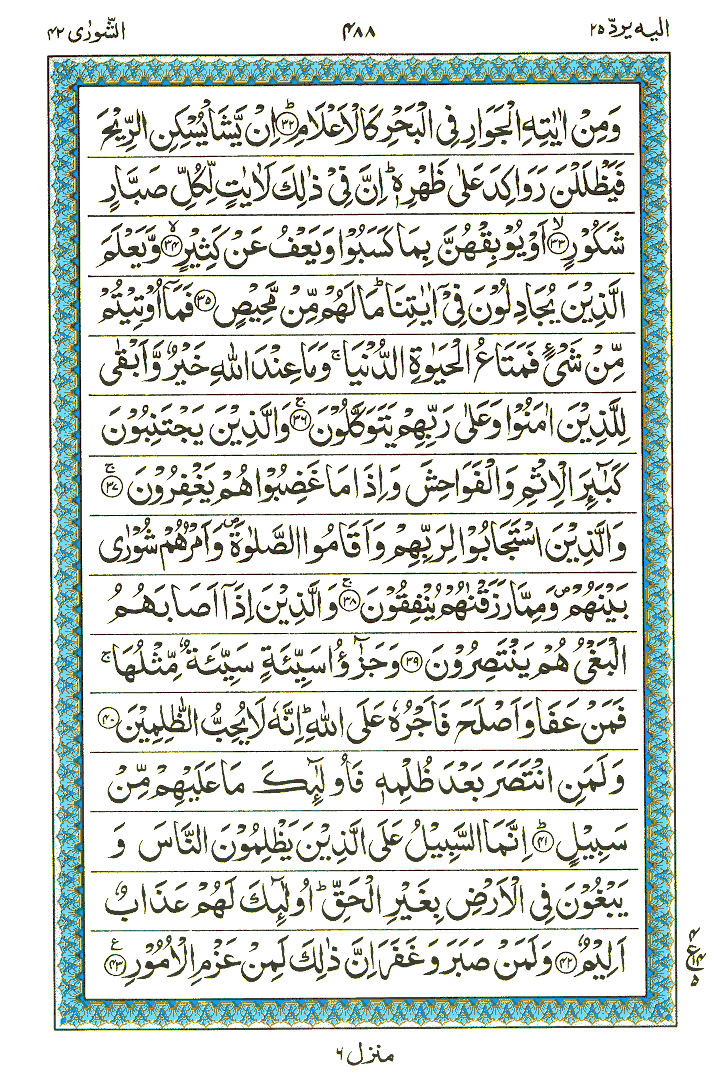 الیه یردّ ٢٥ ٤٨٨ الشّورٰی ٤٢
وَمِنْ اٰيٰتِهِ الْجَوَارِ فِي الْبَحْرِ كَالْاَعْلَامِ ؕ﴿۳۲﴾ اِنْ يَّشَاْ يُسْكِنِ الرِّيْحَ
فَيَظْلَلْنَ رَوَاكِدَ عَلٰى ظَهْرِهٖ ؕ اِنَّ فِيْ ذٰلِكَ لَاٰيٰتٍ لِّكُلِّ صَبَّارٍ
شَكُوْرٍ ۙ﴿۳۳﴾ اَوْ يُوْبِقْهُنَّ بِمَا كَسَبُوْا وَيَعْفُ عَنْ كَثِيْرٍ ۙ﴿۳۴﴾ وَّيَعْلَمَ
الَّذِيْنَ يُجَادِلُوْنَ فِيْۤ اٰيٰتِنَا ؕ مَا لَهُمْ مِّنْ مَّحِيْصٍ ﴿۳۵﴾ فَمَاۤ اُوْتِيْتُمْ
مِّنْ شَيْءٍ فَمَتَاعُ الْحَيٰوةِ الدُّنْيَا ۚ وَمَا عِنْدَ اللّٰهِ خَيْرٌ وَّاَبْقٰى
لِلَّذِيْنَ اٰمَنُوْا وَعَلٰى رَبِّهِمْ يَتَوَكَّلُوْنَ ۚ﴿۳۶﴾ وَالَّذِيْنَ يَجْتَنِبُوْنَ
كَبٰٓئِرَ الْاِثْمِ وَالْفَوَاحِشَ وَاِذَا مَا غَضِبُوْا هُمْ يَغْفِرُوْنَ ۚ﴿۳۷﴾
وَالَّذِيْنَ اسْتَجَابُوْا لِرَبِّهِمْ وَاَقَامُوا الصَّلٰوةَ ۪ وَاَمْرُهُمْ شُوْرٰى
بَيْنَهُمْ ۪ وَمِمَّا رَزَقْنٰهُمْ يُنْفِقُوْنَ ۚ﴿۳۸﴾ وَالَّذِيْنَ اِذَاۤ اَصَابَهُمُ
الْبَغْيُ هُمْ يَنْتَصِرُوْنَ ﴿۳۹﴾ وَجَزٰٓؤُا سَيِّئَةٍ سَيِّئَةٌ مِّثْلُهَا ۚ
فَمَنْ عَفَا وَاَصْلَحَ فَاَجْرُهٗ عَلَى اللّٰهِ ؕ اِنَّهٗ لَا يُحِبُّ الظّٰلِمِيْنَ ﴿۴۰﴾
وَلَمَنِ انْتَصَرَ بَعْدَ ظُلْمِهٖ فَاُولٰٓئِكَ مَا عَلَيْهِمْ مِّنْ
سَبِيْلٍ ؕ﴿۴۱﴾ اِنَّمَا السَّبِيْلُ عَلَى الَّذِيْنَ يَظْلِمُوْنَ النَّاسَ وَ
يَبْغُوْنَ فِي الْاَرْضِ بِغَيْرِ الْحَقِّ ؕ اُولٰٓئِكَ لَهُمْ عَذَابٌ
اَلِيْمٌ ﴿۴۲﴾ وَلَمَنْ صَبَرَ وَغَفَرَ اِنَّ ذٰلِكَ لَمِنْ عَزْمِ الْاُمُوْرِ ﴿۴۳﴾
٤ ع ١٤ ٥
منزل ٦